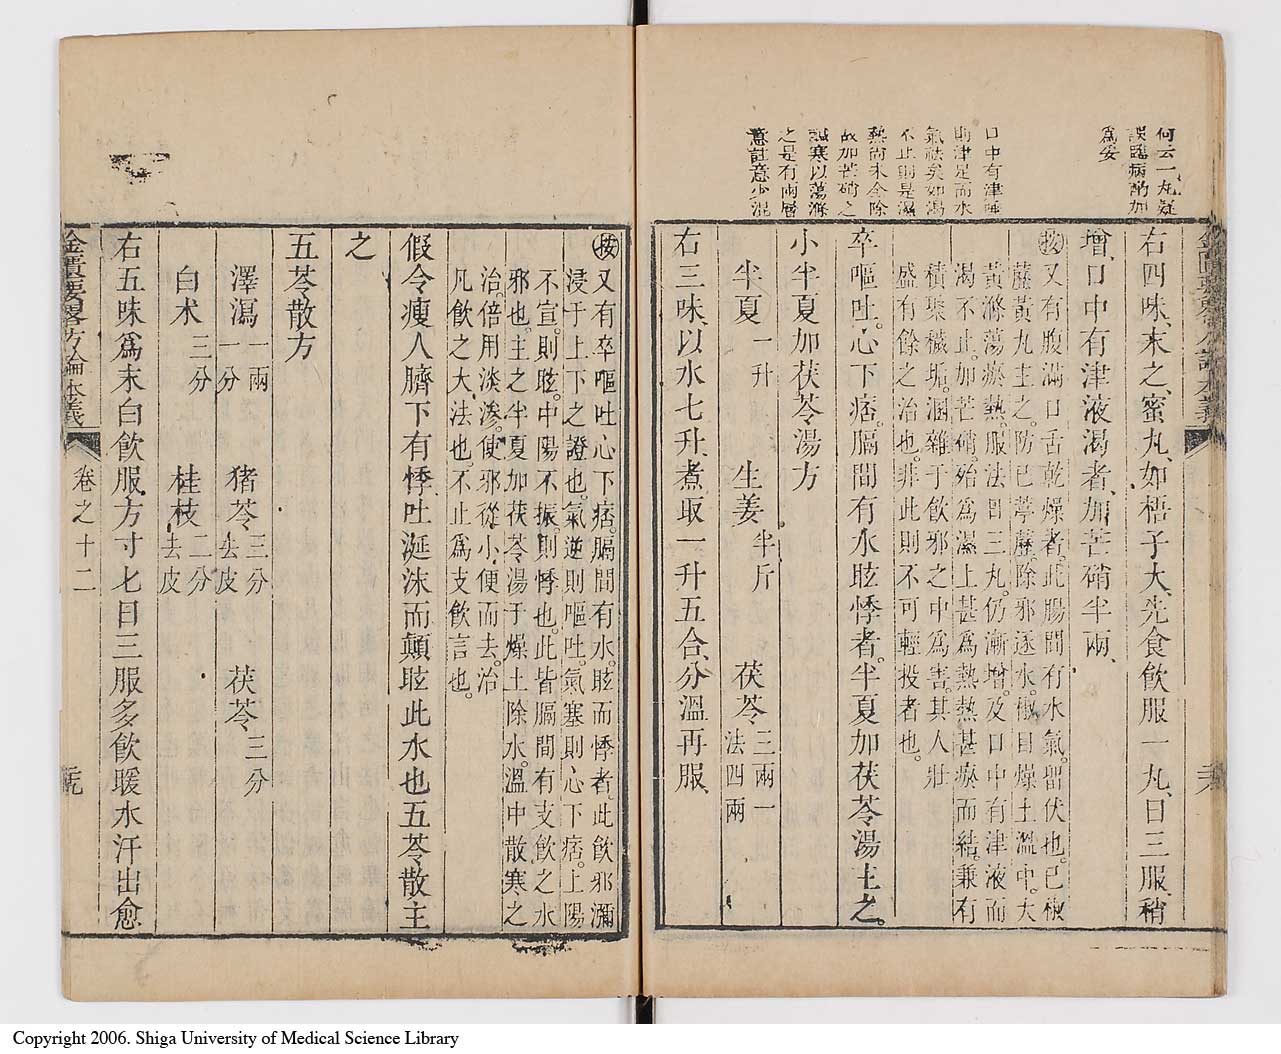 何云一丸疑
誤臨病酌加
爲妥
口中有津唾
則津足而水
氣祛矣如渴
不止則是濕
熱尚未全除
故加芒硝之
鹹寒以蕩滌
之是有兩層
意註意少混
右四味、末之、蜜丸、如梧子大、先食飲服一丸、日三服、稍
增、口中有津液渴者、加芒硝半兩、
按又有腹滿口舌乾燥者、此腸間有水氣留伏也。己椒
藶黃丸主之。防己葶藶除邪逐水。椒目燥土溫中。大
黃滌蕩瘀熱。服法日三丸。仍漸增。及口中有津液而
渴不止。加芒硝殆爲濕上甚爲熱熱甚瘀而結。兼有
積聚穢垢。溷雜于飲邪之中爲害。其人壯
盛有餘之治也。非此則不可輕投者也。
卒嘔吐。心下痞。膈間有水眩悸者。半夏加茯苓湯主之。
小半夏加茯苓湯方
半夏 一升 生姜 半斤 茯苓 三兩一法四兩
右三味、以水七升、煮取一升五合、分溫再服、
按又有卒嘔吐心下痞。膈間有水。眩而悸者此飲邪瀰
浸于上下之證也。氣逆則嘔吐。氣塞則心下痞。上陽
不宣。則眩。中陽不振。則悸也。此皆膈間有支飲之水
邪也。主之半夏加茯苓湯于燥土除水。溫中散寒之
治。倍用淡滲。使邪從小便而去。治
凡飲之大法也。不止爲支飲言也。
假令瘦人臍下有悸。吐涎沫而顛眩此水也五苓散主
之
五苓散方
澤瀉 一兩一分 猪苓 三分去皮 茯苓 三分
白术 三分 桂枝 二分去皮
右五味爲末白飲服方寸匕日三服多飲暖水汗出愈
金匱要畧方論本義
卷之十二
Copyright 2006. Shiga University of Medical Science Library